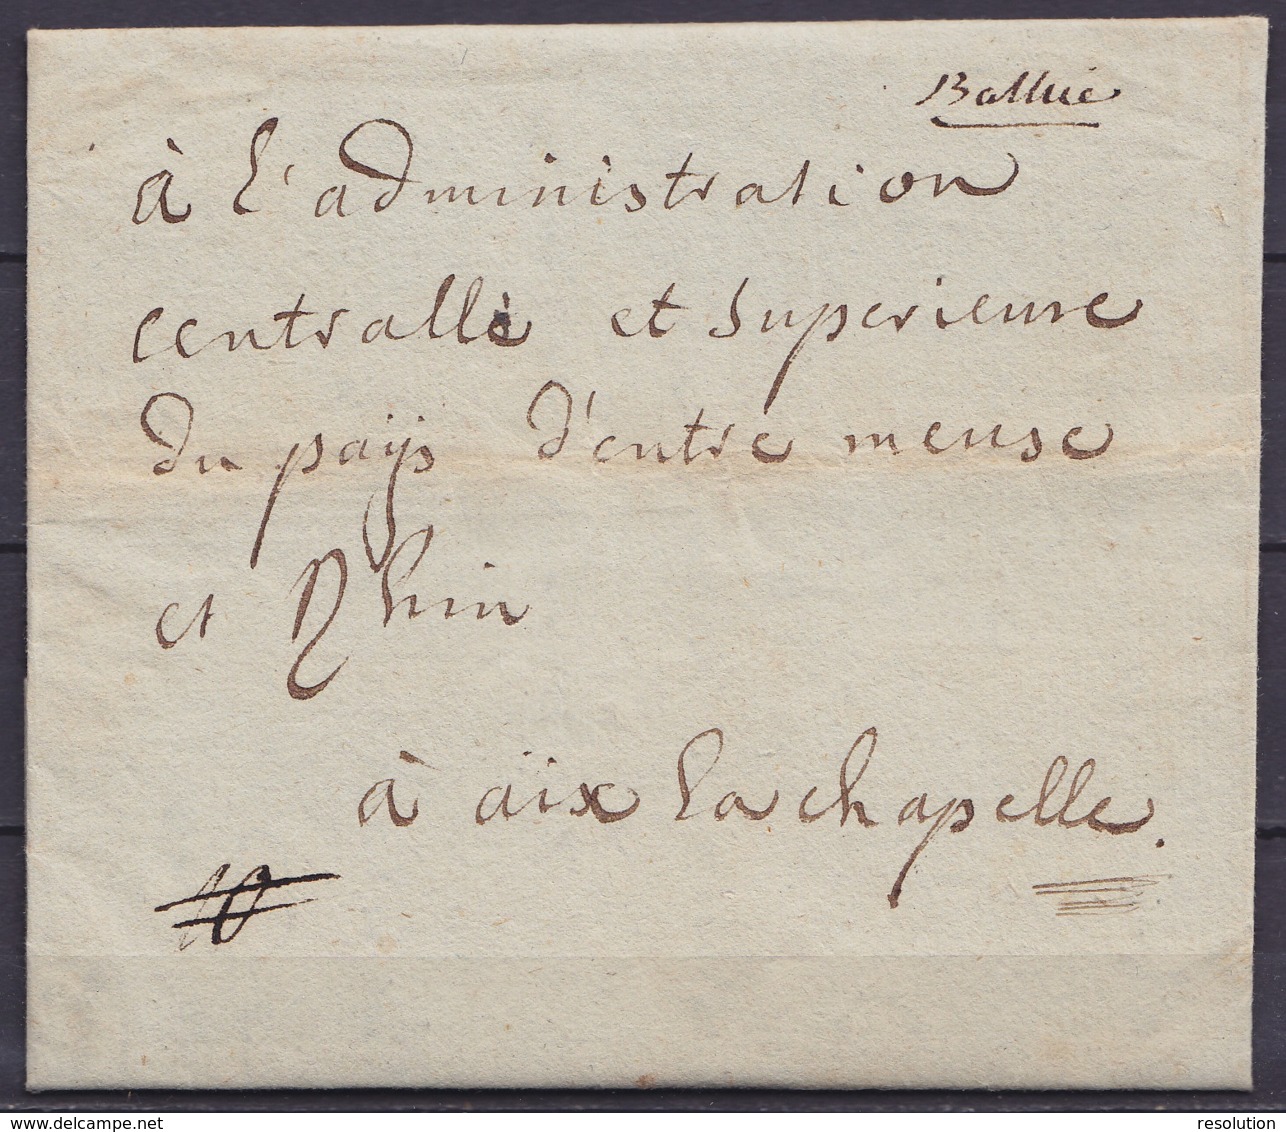 Balluë
à l'administration
centralle et superieure
du païjs d'entre meuse
et Rhin
à aix la chapelle.
10
www.delcampe.net
resolution